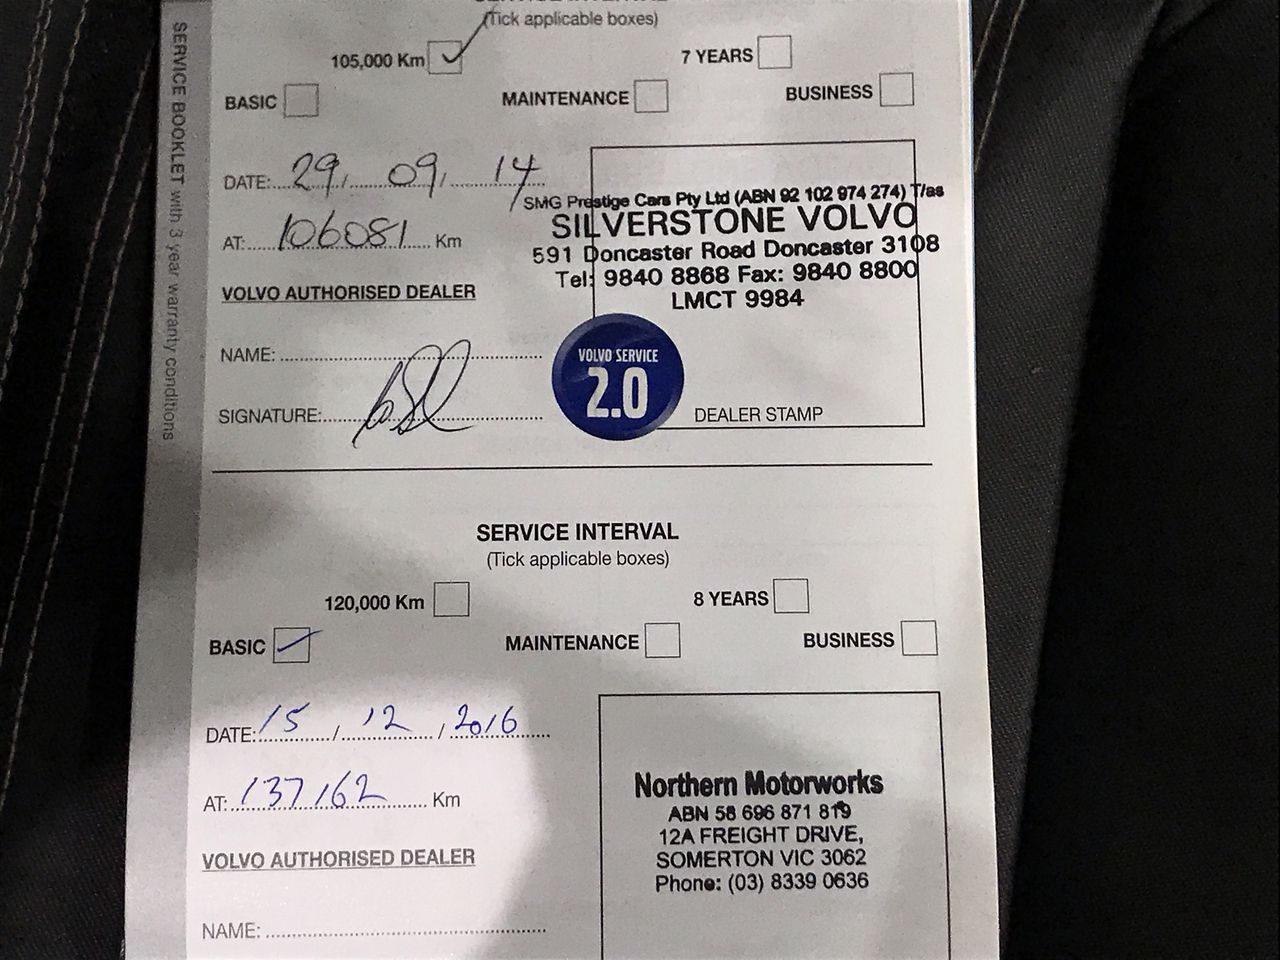 (Tick applicable boxes)
105,000 Km 7 YEARS
BASIC MAINTENANCE BUSINESS
DATE: 29 / 09 / 14
SMG Prestige Cars Pty Ltd (ABN 92 102 974 274) T/as
SILVERSTONE VOLVO
591 Doncaster Road Doncaster 3108
Tel: 9840 8868 Fax: 9840 8800
LMCT 9984
AT: 106081 Km
VOLVO AUTHORISED DEALER
NAME:
SIGNATURE:
VOLVO SERVICE
2.0
DEALER STAMP
SERVICE BOOKLET with 3 year warranty conditions
SERVICE INTERVAL
(Tick applicable boxes)
120,000 Km 8 YEARS
BASIC MAINTENANCE BUSINESS
DATE: 15 / 12 / 2016
AT: 137162 Km
VOLVO AUTHORISED DEALER
NAME:
Northern Motorworks
ABN 58 696 871 819
12A FREIGHT DRIVE,
SOMERTON VIC 3062
Phone: (03) 8339 0636